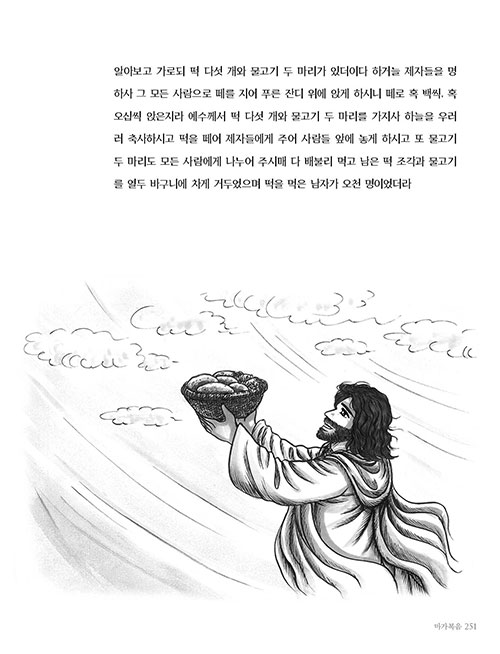 알아보고 가로되 떡 다섯 개와 물고기 두 마리가 있더이다 하거늘 제자들을 명
하사 그 모든 사람으로 떼를 지어 푸른 잔디 위에 앉게 하시니 떼로 혹 백씩, 혹
오십씩 앉은지라 예수께서 떡 다섯 개와 물고기 두 마리를 가지사 하늘을 우러
러 축사하시고 떡을 떼어 제자들에게 주어 사람들 앞에 놓게 하시고 또 물고기
두 마리도 모든 사람에게 나누어 주시매 다 배불리 먹고 남은 떡 조각과 물고기
를 열두 바구니에 차게 거두었으며 떡을 먹은 남자가 오천 명이었더라
마가복음 251